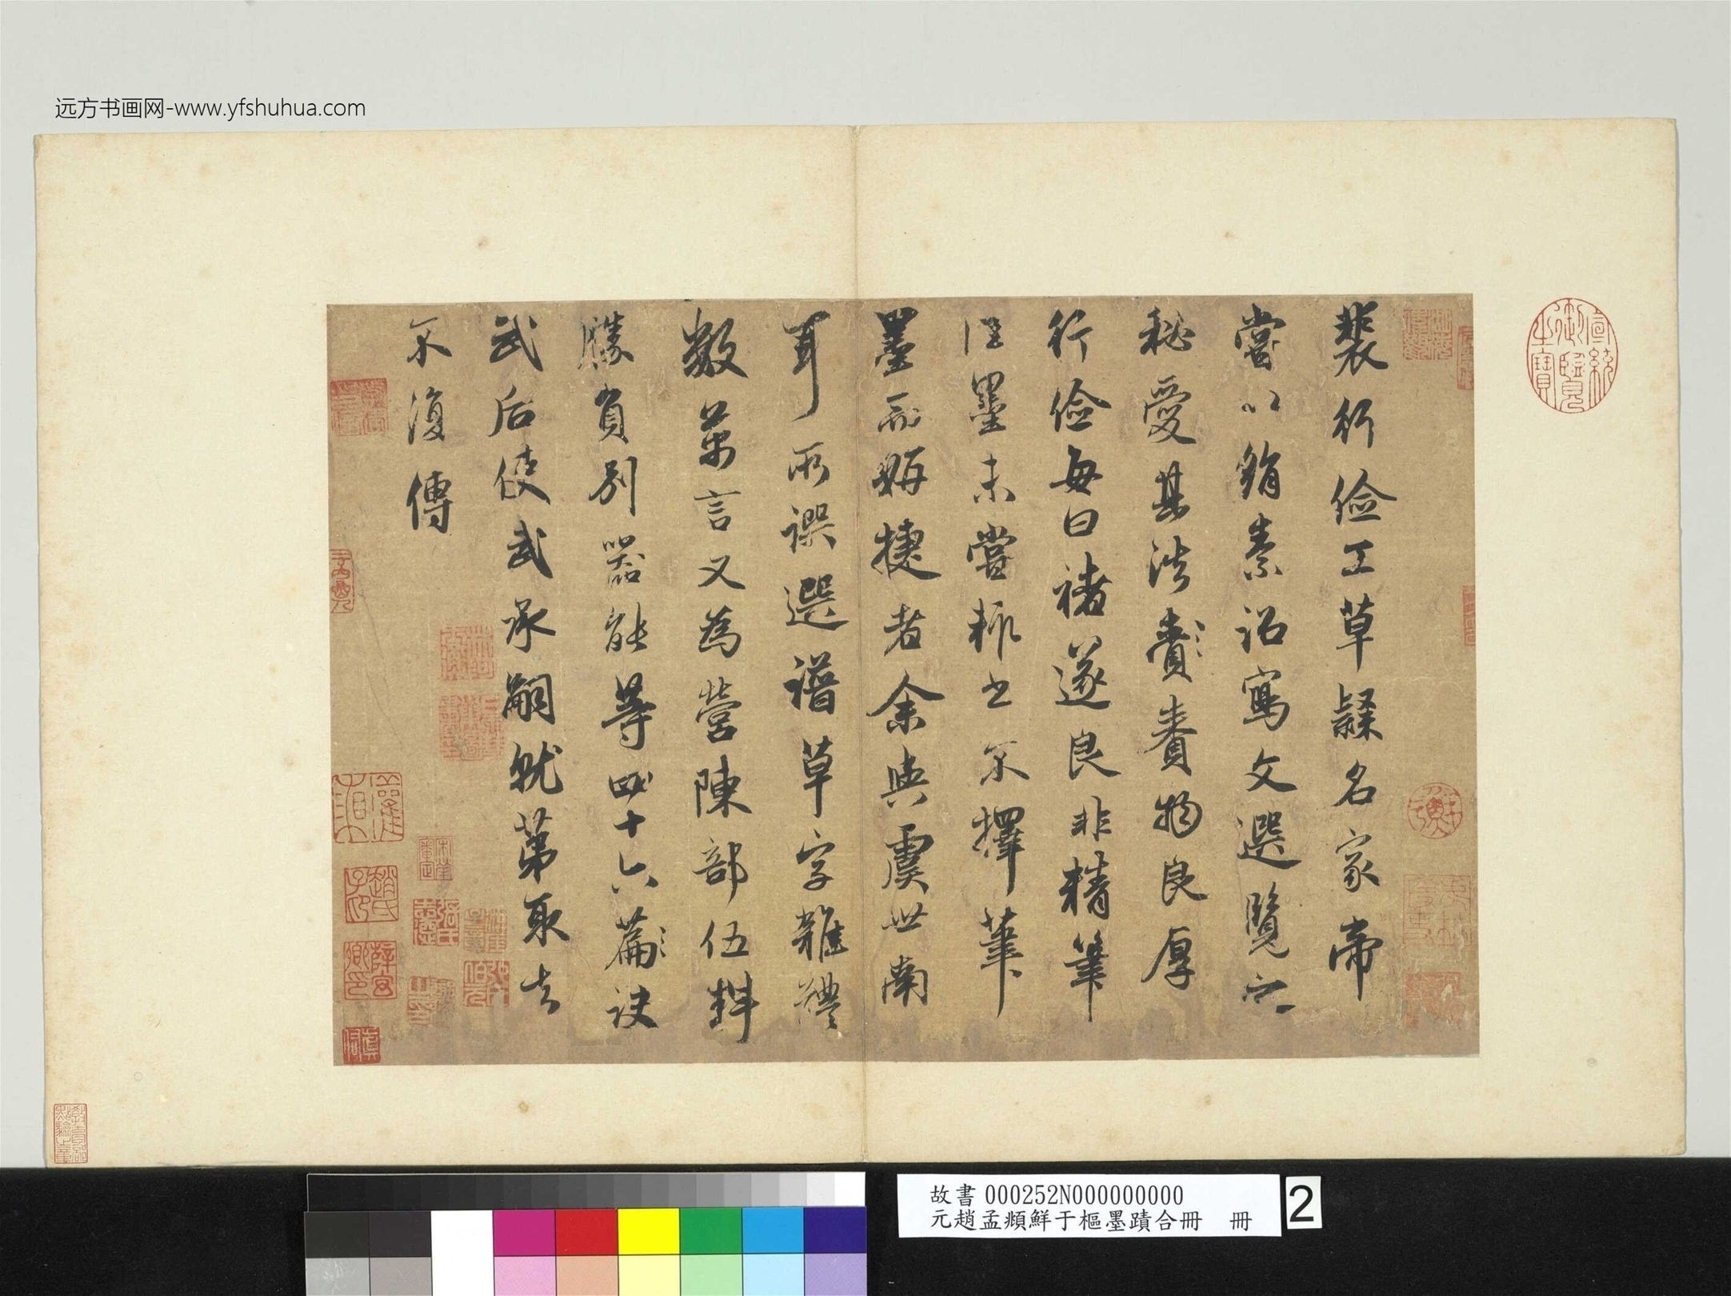 远方书画网-www.yfshuhua.com
裴行俭工草隸名家帝
嘗以絹素詔寫文選覽之
秘愛其法賚賚物良厚
行俭每曰褚遂良非精筆
佳墨未嘗輒书不擇筆
墨而妍捷者余與虞世南
耳所譔選譜草字雜體
數萬言又為營陳部伍料
勝負别器能等四十六篇訣
武后使武承嗣就第取去
不復傳
宣統御覽之寶
故書 000252N000000000
元趙孟頫鮮于樞墨蹟合冊 冊
2